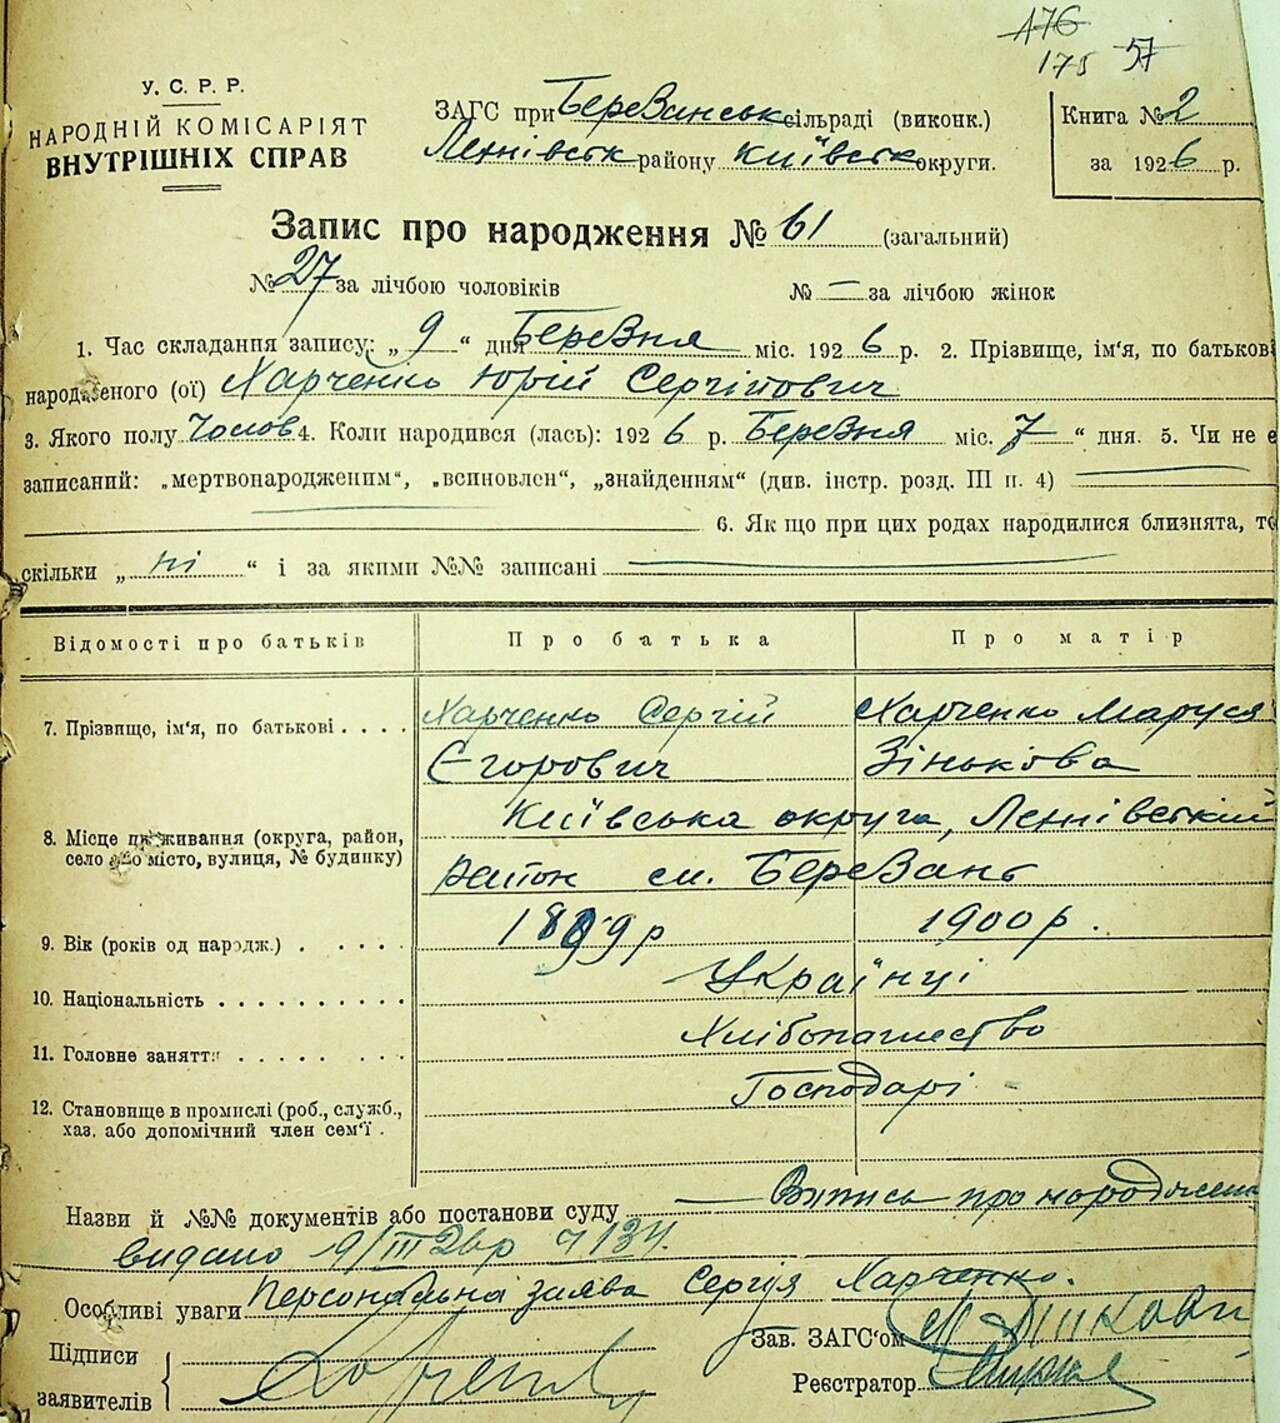 176
175 57
У. С. Р. Р.
НАРОДНІЙ КОМІСАРІЯТ
ВНУТРІШНІХ СПРАВ
ЗАГС при Березанськ сільраді (виконк.)
району Київськ округи.
Книга № 2
за 1926 р.
Запис про народження № 61 (загальний)
№ 27 за лічбою чоловіків № — за лічбою жінок
1. Час складання запису: „ 9 “ дня Березня міс. 1926 р. 2. Прізвище, ім‘я, по батькові
народженого (ої) Харченко Юрій Сергійович
3. Якого полу Чолов 4. Коли народився (лась): 1926 р. Березня міс. 7 “ дня. 5. Чи не є
записаний: „мертвонародженим“, „всиновлен“, „знайденням“ (див. інстр. розд. III п. 4)
6. Як що при цих родах народилися близнята, то
скільки „ ні “ і за якими №№ записані
Відомості про батьків Про батька Про матір
7. Прізвище, ім‘я, по батькові . . . . Харченко Сергій Харченко Маруся
Єгорович Зінькова
Київська округа,
8. Місце проживання (округа, район,
село або місто, вулиця, № будинку)
район см. Березань
9. Вік (років од народж.) . . . . . 1899 р 1900 р.
10. Національність . . . . . . . . . . Українці
11. Головне заняття . . . . . . . . Хлібопашество
12. Становище в промислі (роб., служб.,
хаз. або допомічний член сем‘ї . Господарі
Назви й №№ документів або постанови суду Випись про народження
видано 9/III 26 р ч 134.
Особливі уваги Персональна заява Сергія Харченко.
Підписи
заявителів
Зав. ЗАГС‘ом
Реєстратор